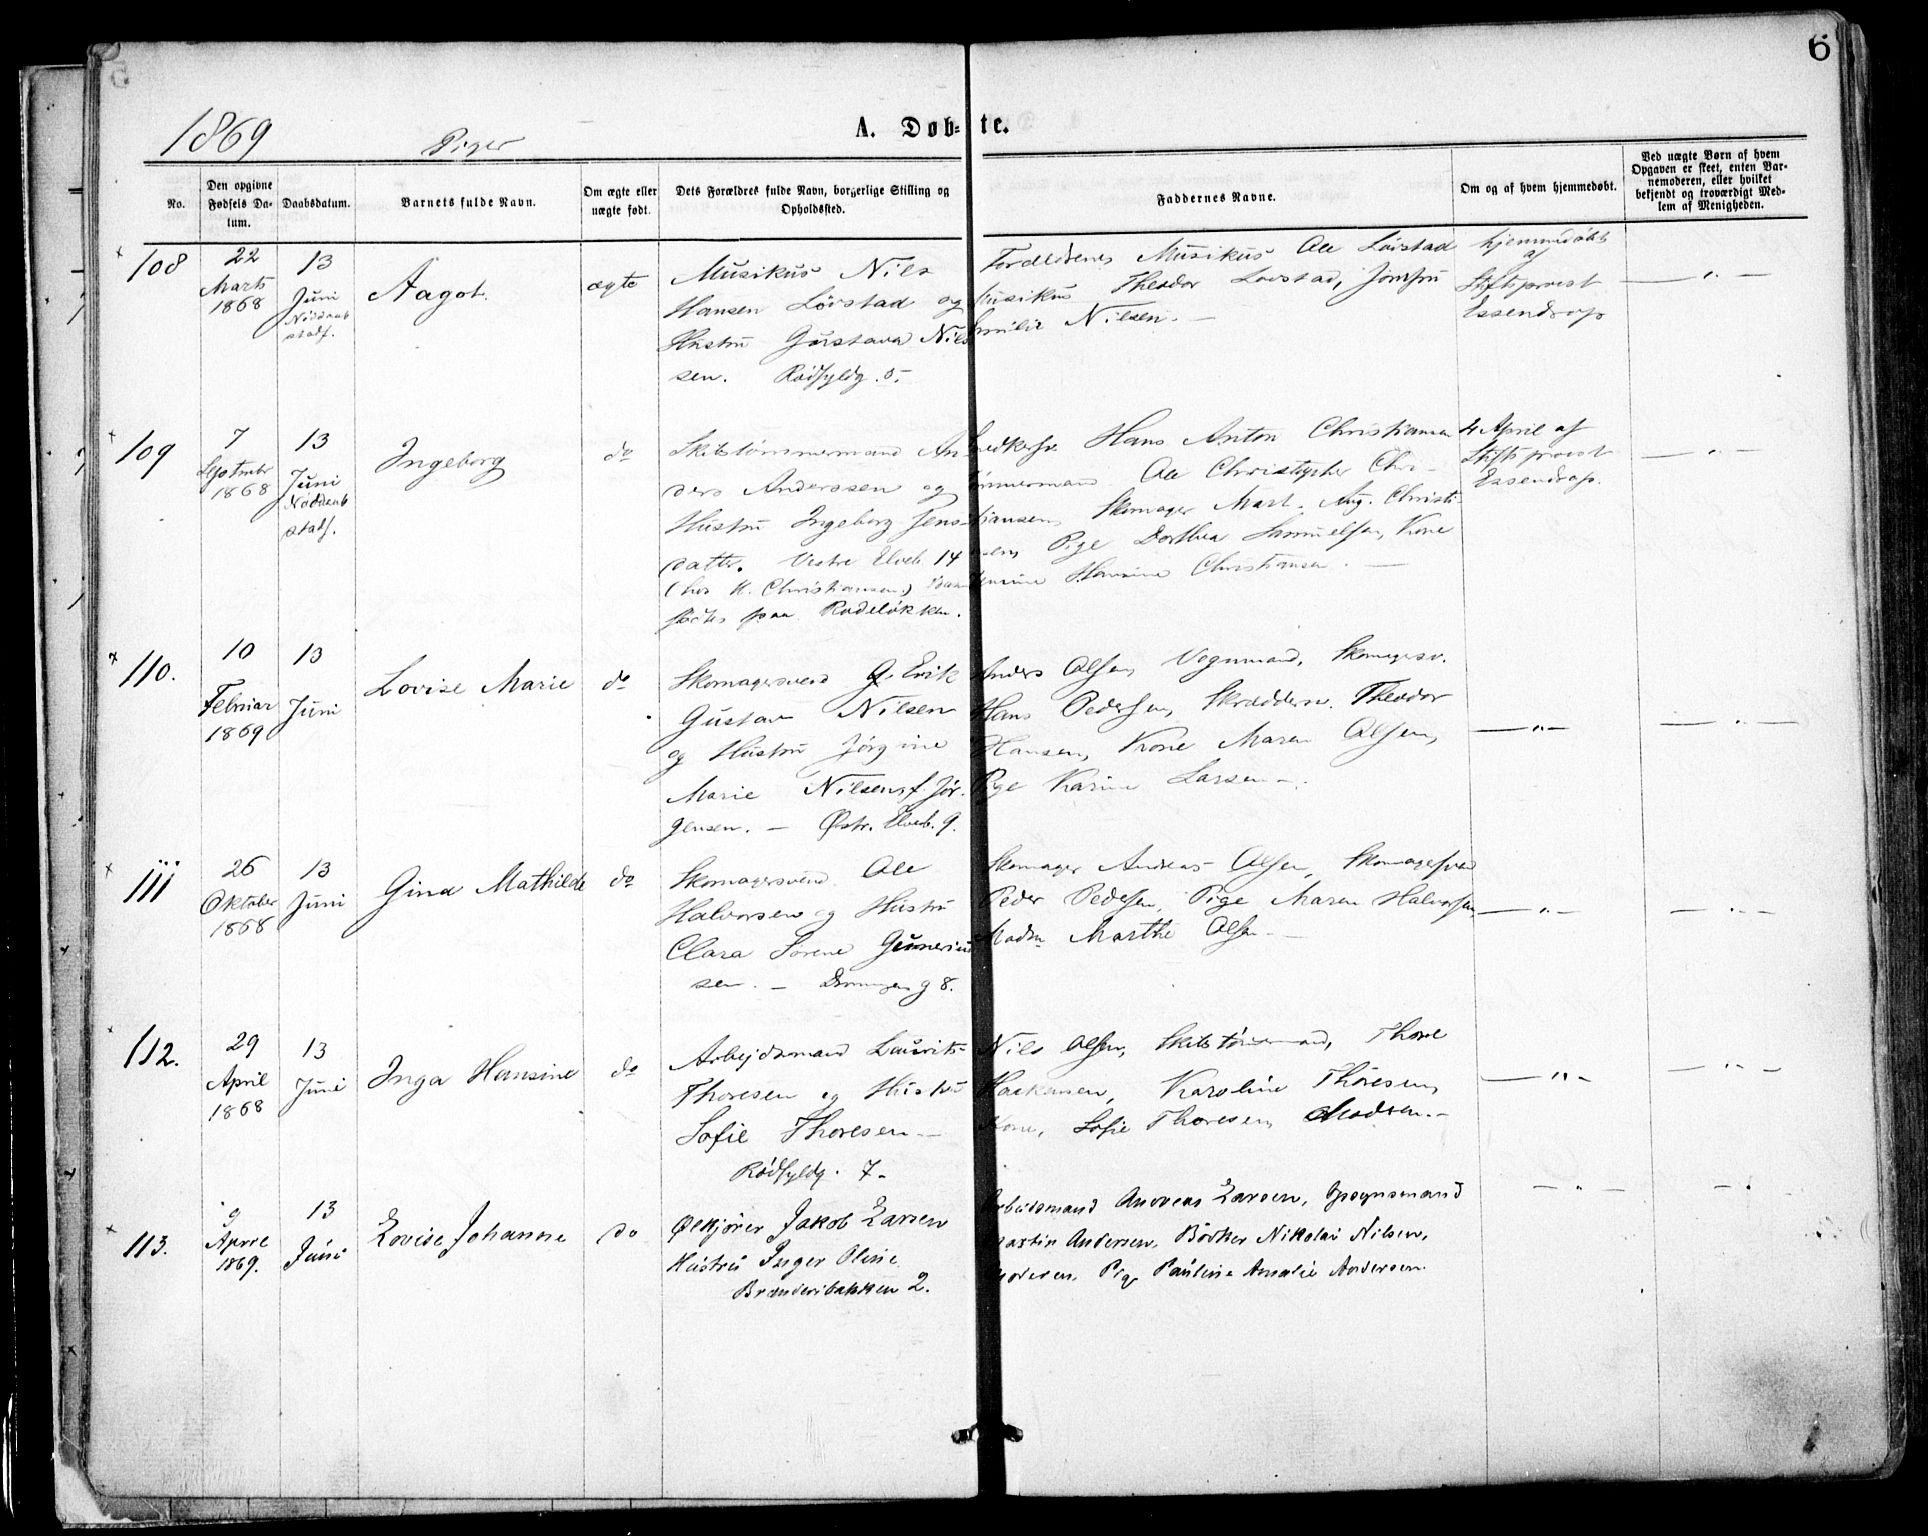 6
1869
Piger
A. Døb-te.
No.
Den opgivne Fødsels Da-tum.
Daabsdatum.
Barnets fulde Navn.
Om ægte eller uægte født.
Dets Forældres fulde Navn, borgerlige Stilling og Opholdssted.
Faddernes Navne.
Om og af hvem hjemmedøbt.
Ved uægte Børn af hvem Opgaven er skeet, enten Bar-nemoderen, eller hvilket bekjendt og troværdigt Med-lem af Menigheden.
108
22
Marts
1868
13
Juni
Aagot.
ægte
Musikus Nils
Hansen Lövstad og
Hustru Gustava Nil
sen. Rödfyldg. 5.
Forældrene, Musikus Ole Lövstad
Musikus Theodor Lovstad, Jomfru
Emilie Nilsen. —
hjemmedøbt
af
Stiftsprovst
Essendrop
— " —
109
7
Septmbr
1868
13
Juni
Ingeborg
do
Skibstømmermand An
ders Anderssen og
Hustru Ingeborg Jens
datter. Vestre Elveb. 14
(hos K. Christiansen)
födt paa Rodeløkken.
Hans Anton Christiansen
Ole Christopher Chri-
stiansen, Skomager Mart. Aug. Christi-
Pige Dorthea Samuelsen, Kone
Hansine Christiansen. —
4 April af
Stiftsprovst
Essendrop.
— " —
110.
10
Februar
1869
13
Juni
Lovise Marie
do
Skomagersvend G. Erik
Gustav Nilsen
og Hustru Jørgine
Marie Nilsen, f. Jør.
gensen. — Østr. Elveb. 9.
Anders Olsen, Vognmand, Skomagersv.
Hans Pedersen, Skræddersv. Theodor
Hansen, Kone Maren Olsen,
Pige Karine Larsen —.
— " —
— " —
111
26
Oktober
1868
13
Juni
Gina Mathilde
do
Skomagersvend Ole
Halvorsen og Hustru
Clara Sørene Gunerius
sen. — 8.
Skomager Andreas Olsen, Skomagersvend
Peder Pedersen, Pige Maren Halvorsen
Madm Marthe Olsen —
— " —
— " —
112.
29
April
1868
13
Juni
Inga Hansine
do
Arbejdsmand Laurits
Thoresen og Hustru
Sofie Thoresen —
Rödfyldg. 7.
Nils Olsen, Skibstømmermand, Thore
Haakensen, Karoline Thoresen,
Kone, Sofie Thoresen, Madsen. —
— " —
— " —
113.
9
April
1869.
13
Juni
Lovise Johanne
do
Ølkjører Jakob Larsen
Hustru Inger Oline
Brænderibakken 2.
Arbeidsmand Andreas Larsen, Opsynsmand
Martin Andersen, Bödker Nikolai Nilsen,
Moderen, Pige Pauline Amalie Andersen.
— " —
— " —